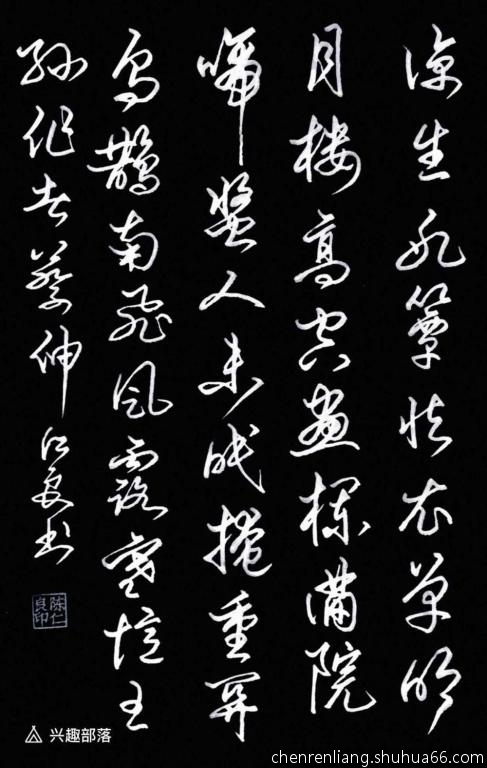 凉生冰簟怯衣单明
月楼高空画栏满院
啼螀人未眠掩重关
乌鹊南飞风露寒忆王
孙作者蔡伸 仁良书
陈仁良印
兴趣部落
chenrenliang.shuhua66.com